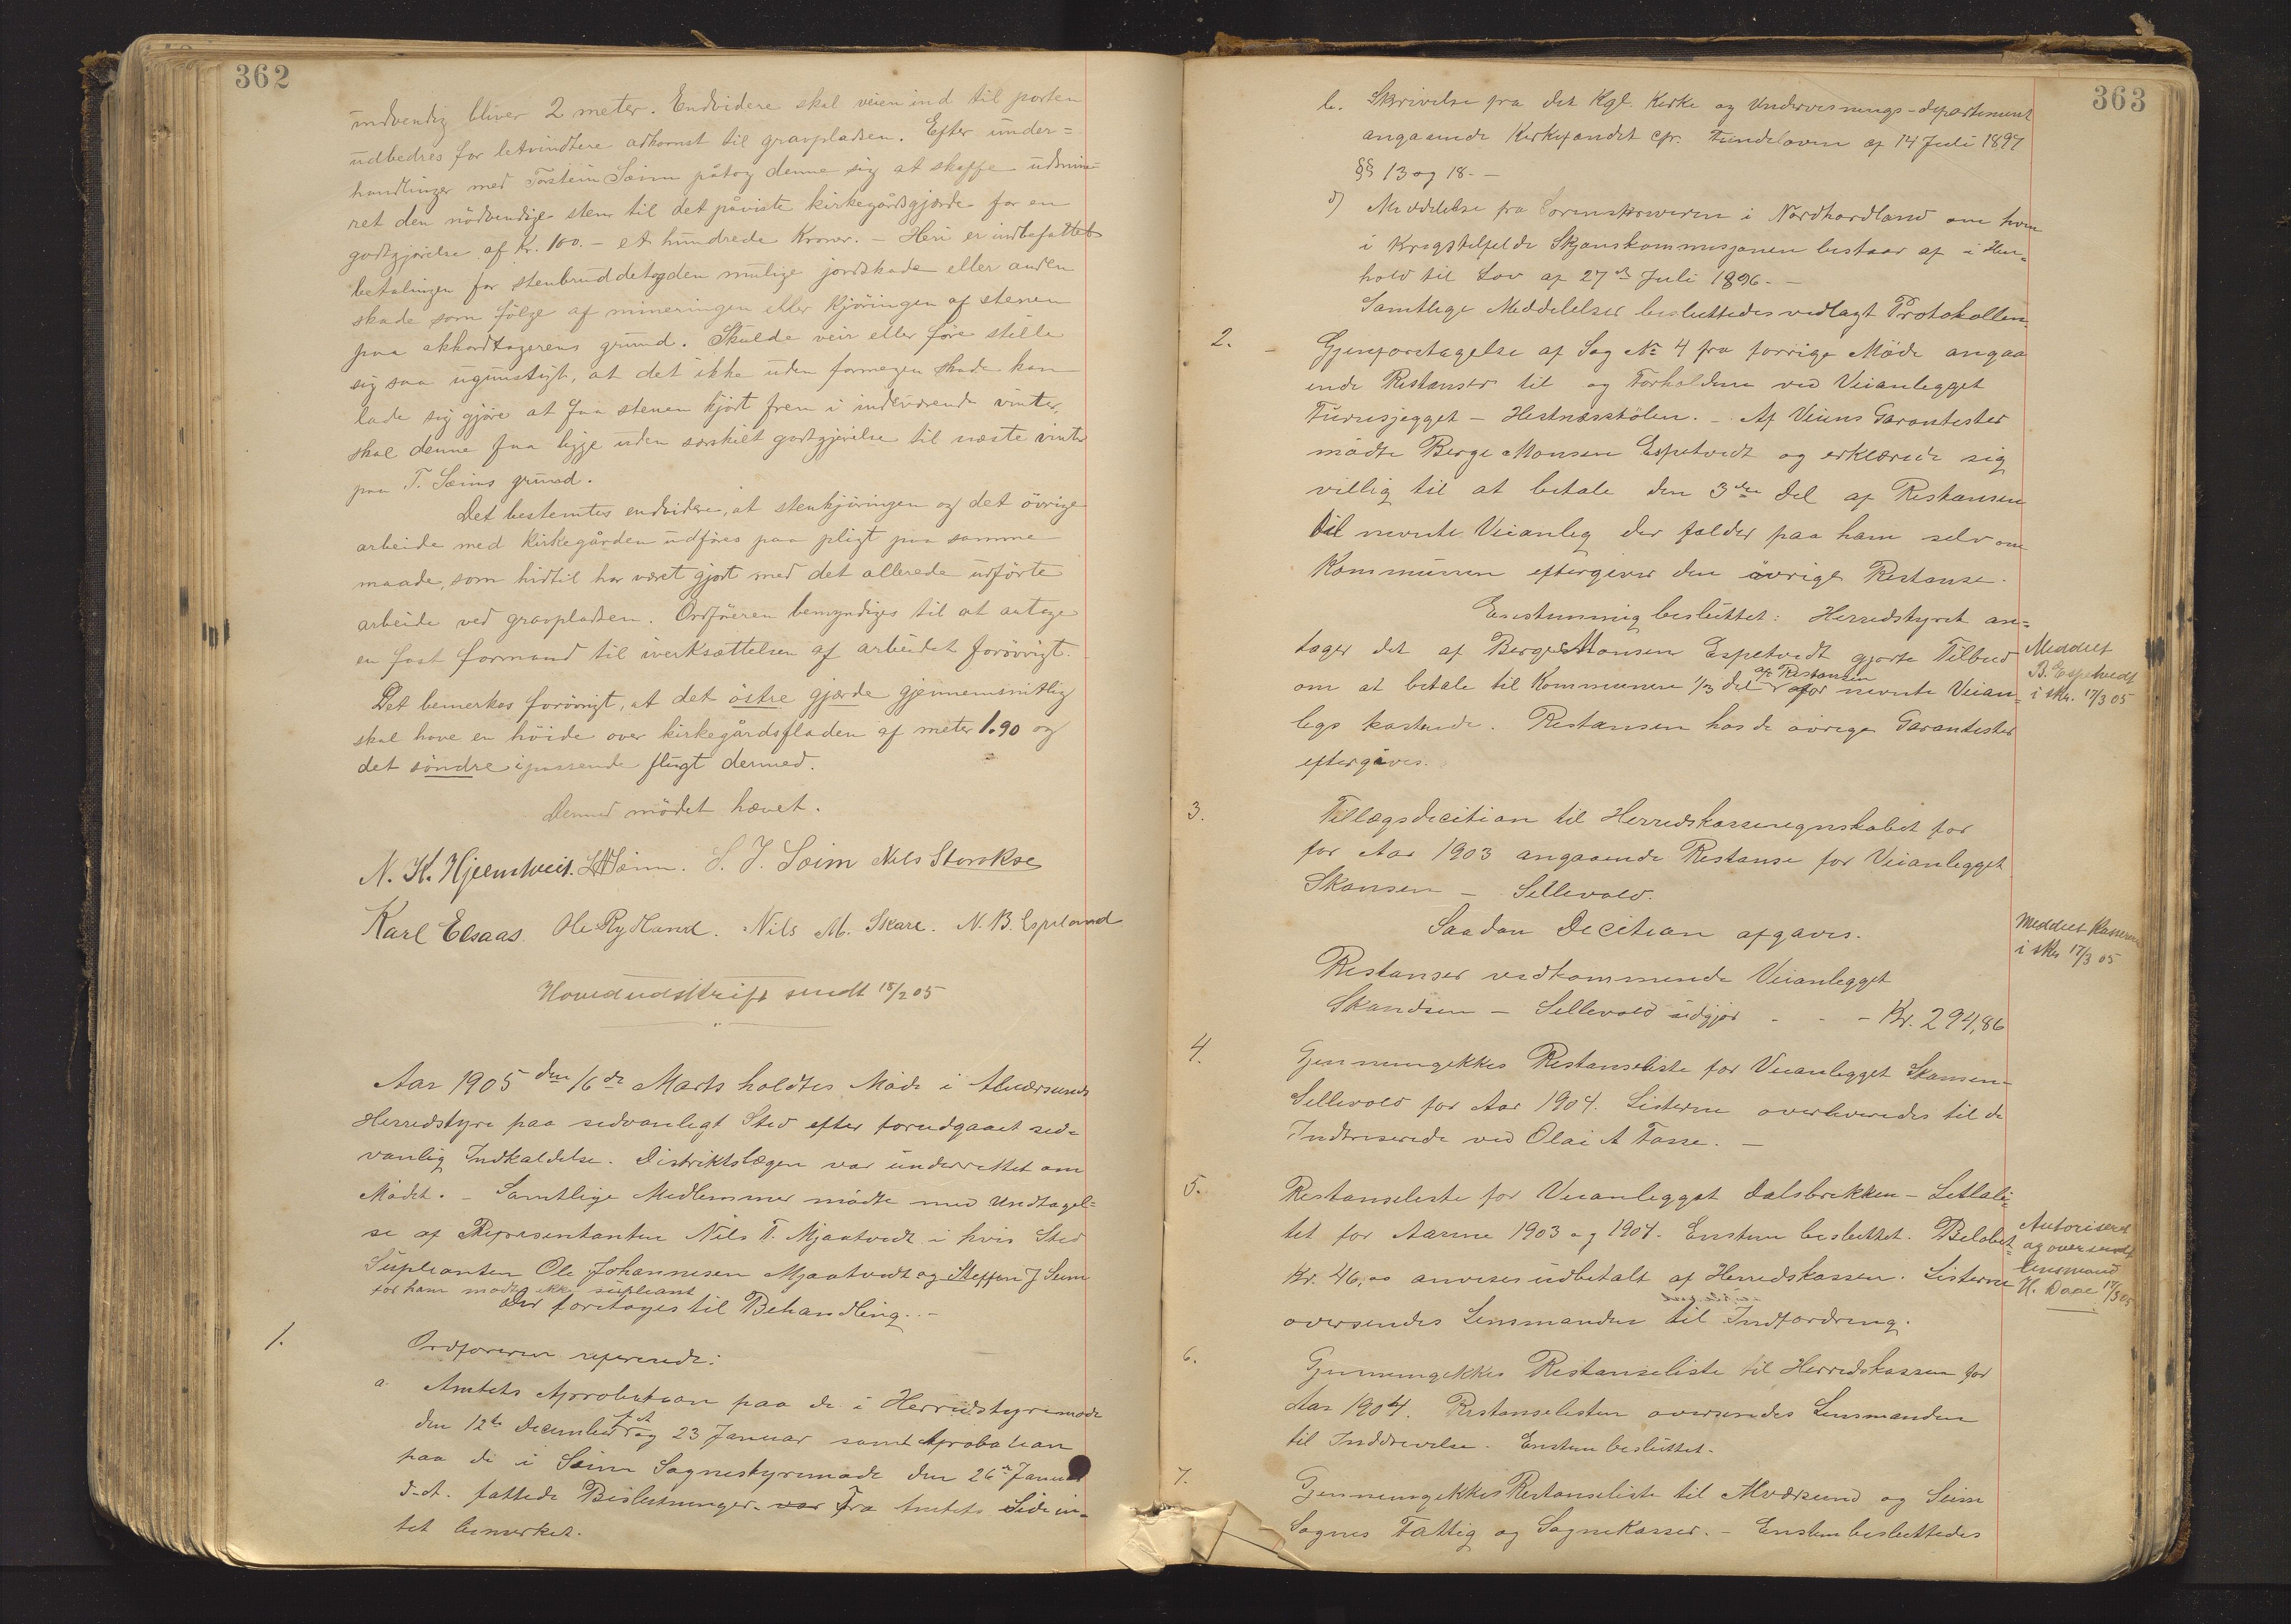 362
indvendig bliver 2 meter. Endvidere skal veien ind til porten
udbedres for letvindtere adkomst til gravpladsen. Efter under=
handlinger med Torstein Sæim påtog denne sig at skaffe udmine=
ret den nödvendige sten til det påviste kirkegårdsgjærde for en
godtgjörelse af kr. 100.- et hundrede Kroner. - Heri er indbefattet
betalingen for stenbruddet og den mulige jordskade eller anden
skade som fölge af mineringen eller kjöringen af stenen
paa akkordtagerens grund. Skulde veir eller före stille
sig saa ugunstigt, at det ikke uden formegen skade kan
lade sig gjöre at faa stenen kjört frem i indeværende vinter,
skal denne faa ligge uden særskilt godtgjörelse til næste vinter
paa T. Sæims grund.
Det bestemtes endvidere, at stenkjöringen og det övrige
arbeide med kirkegården udföres paa pligt paa samme
maade, som hidtil har været gjort med det allerede udförte
arbeide ved gravpladsen. Ordföreren bemyndiges til at antage
en fast formand til iverksættelsen af arbeidet forövrigt.
Det bemerkes forövrigt, at det östre gjærde gjennemsnitlig
skal have en höide over kirkegårdsfladen af meter 1.90 og
det söndre i passende flugt dermed.
Dermed mödet hævet.
N. K. Hjelmtveit. S. J. Soim Nils Storokse
Karl Elsaas Ole Rydland. Nils M. Skare. N. B. Espeland
Hovedudskrift sendt 18/2 05
Aar 1905 den 16de Marts holdtes Möde i Alversunds
Herredstyre paa sedvanligt Sted efter forudgaaet sed-
vanlig Indkaldelse. Distriktslægen var underrettet om
Mödet. - Samtlige Medlemmer mödte med Undtagel=
se af Repræsentanten Nils T. Mjaatvedt i hvis Sted
Supleanten Ole Johannesen Mjaatvedt og Steffen J Seim
for ham mödte ikke supleant
Der foretoges til Behandling. -
1.
Ordföreren refererede:
a. Amtets Approbation paa de i Herredstyremöde
den 12te December f. A og 23 Januar samt Aprobation
paa de i Seim Sognestyremöde den 26de Januar
d. A. fattede Beslutninger. var Fra Amtets Side in=
tet bemerket.
363
b. Skrivelse fra det Kgl. Kirke og Undervisnings-departement
angaaende Kirkefondet cfr. Kirkeloven af 14 Juli 1897
§§ 13 og 18. -
d) Meddelelse fra Sorenskriveren i Nordhordland om hvem
i Krigstilfelde Skjönskommisjonen bestaar af i Hen=
hold til Lov af 27de Juli 1896. -
Samtlige Meddelelser besluttedes vedlagt Protokollen.
2. - Gjenforetagelse af Sag No 4 fra forrige Möde angaa
ende Restanser til og Forholdene ved Veianlegget
Fureskjegget - Hestnæsstölen. - Af Veiens Garantister
mödte Berge Monsen Espetvedt og erklærede sig
villig til at betale den 3die Del af Restansen
til nevnte Veianleg der falder paa ham selv om
Kommunen eftergiver den övrige Restanse.
Enstemmig besluttet: Herredstyret an=
tager det af Berge Monsen Espetvedt gjorte Tilbud
om at betale til Kommunen 1/3 del af Restansen for nevnte Veian=
legs kostende. Restansen hos de övrige Garantister
eftergives.
Meddelt
B. Espetvedt
i skr. 17/3 05
3. Tillægsdecition til Herredskasseregnskabet for
for Aar 1903 angaaende Restanse for Veianlegget
Skansen - Sellevold.
Saadan Decition afgaves.
Restanser vedkommende Veianlegget
Skandsen - Sellevold udgjör - - - Kr. 294,86
Meddelt Kasseren
i skr 17/3 05
4. Gjennemgikkes Restanseliste for Veianlegget Skansen-
Sellevold for Aar 1904. Listerne overleveredes til de
Indtreserede ved Olai A Tosse. -
5. Restanseliste for Veianlegget Dalsbrekken - Litlale=
tet for Aarene 1903 og 1904. Enstem besluttet. Belöbet
Kr. 46,00 anvises udbetalt af Herredskassen. Listerne
oversendes Lensmanden til Indfordring.
Autoriseret
og oversendt
lensmand
H. Daae 17/3 05
6. Gjennemgikkes Restanseliste til Herredskassen for
Aar 1904. Restanselisten oversendes Lensmanden
til Inddrivelse. Enstem besluttet.
7. Gjennemgikkes Restanseliste til Alversund og Seim
Sognes Fattig og Sognekasser. - Enstem besluttedes